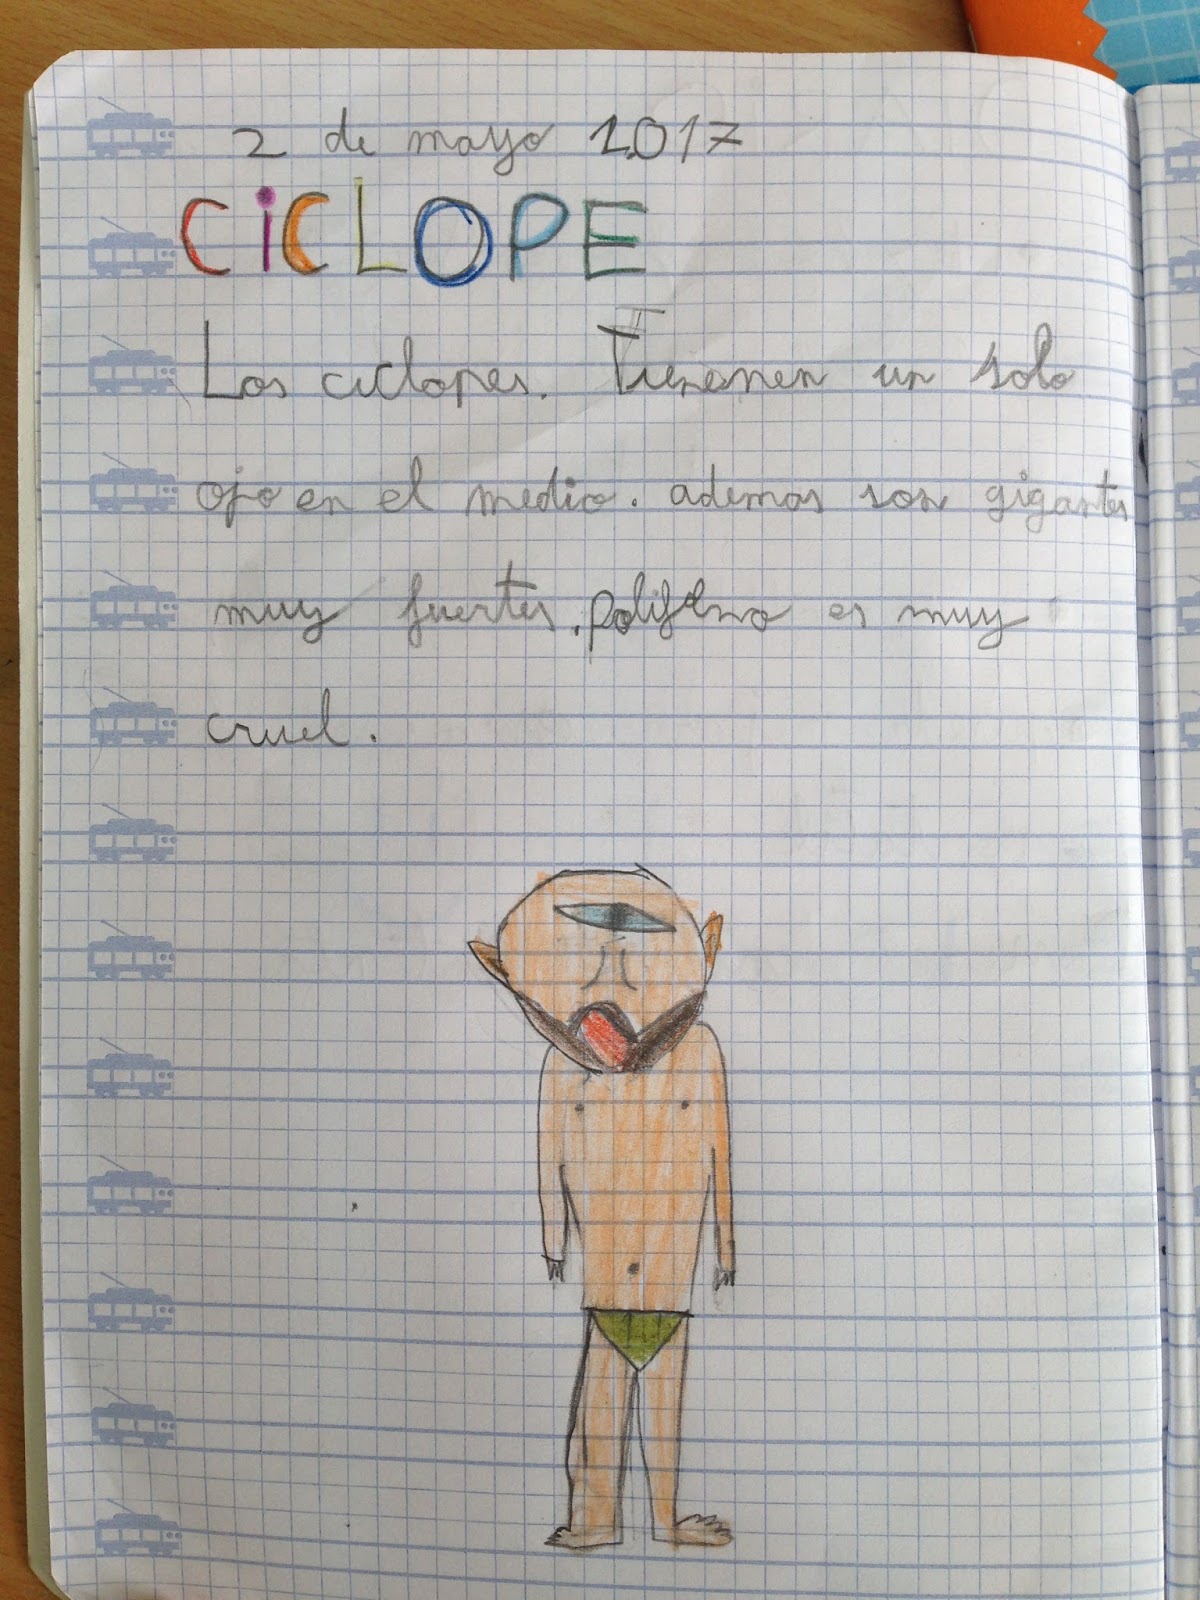 2 de mayo 2017
CiCLOPE
Los ciclopes. Tienenen un solo
ojo en el medio. ademas son gigantes
muy fuertes. polifemo es muy
cruel.